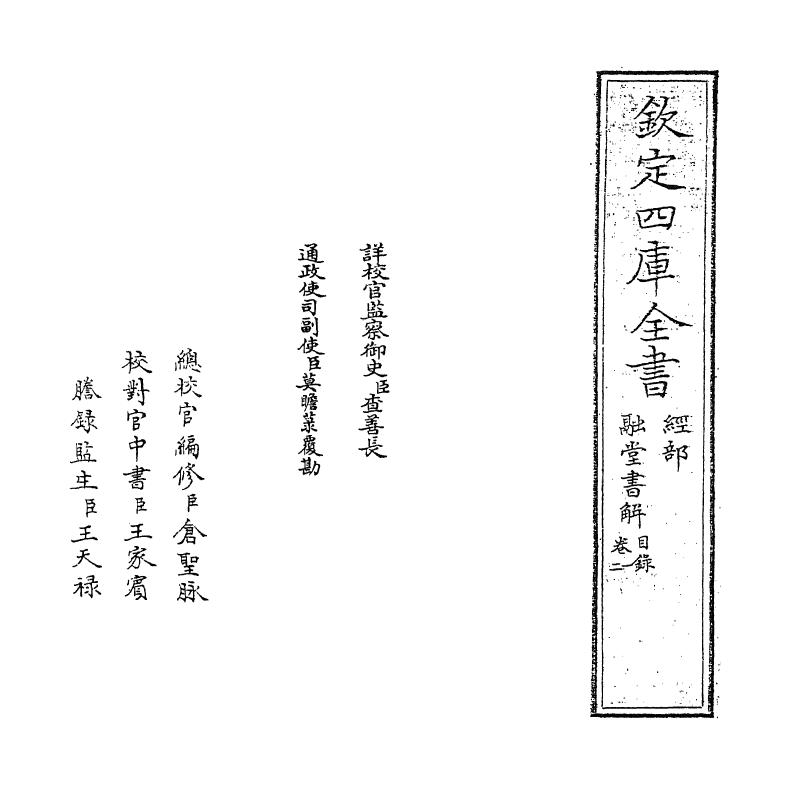 欽定四庫全書
經部
融堂書解
目錄
卷二
詳校官監察御史臣查善長
通政使司副使臣莫瞻菉覆勘
總校官編修臣倉聖脉
校對官中書臣王家賓
謄録監生臣王天禄